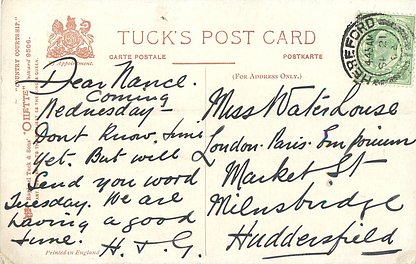 TUCK'S POST CARD
CARTE POSTALE
POSTKARTE
(FOR ADDRESS ONLY.)
"COUNTRY COURTSHIP."
"OILETTE"
HEREFORD
Dear Nance.
Coming
Wednesday -
Dont know time
yet. But will
send you word
Tuesday. We are
having a good
time.
H & G.
Miss Waterlouse
London Paris Emporium
Market St
Milnsbridge
Huddersfield
Printed in England